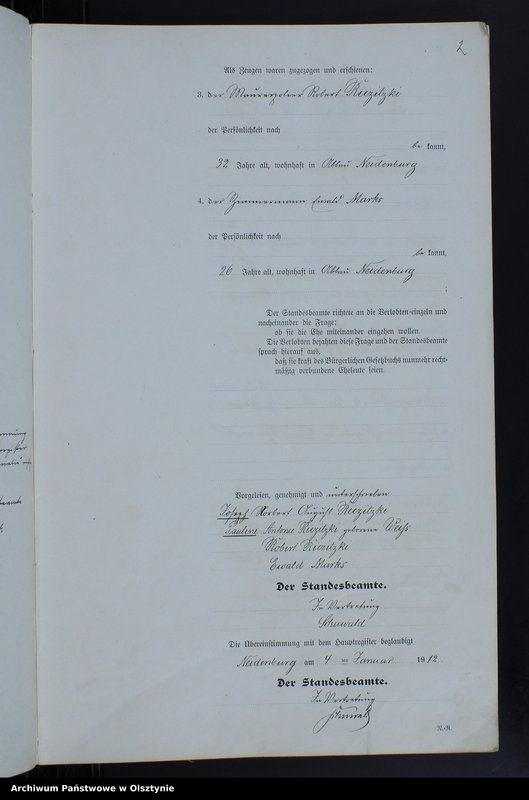 2
Als Zeugen waren zugezogen und erschienen:
3. der Maurerpolier Robert Kiezitzki
der Persönlichkeit nach
be kannt,
32 Jahre alt, wohnhaft in Abbau Neidenburg
4. der Zimmermann Ewald Marks
der Persönlichkeit nach
be kannt,
26 Jahre alt, wohnhaft in Abbau Neidenburg
Der Standesbeamte richtete an die Verlobten einzeln und
nacheinander die Frage:
ob sie die Ehe miteinander eingehen wollen.
Die Verlobten bejahten diese Frage und der Standesbeamte
sprach hierauf aus,
daß sie kraft des Bürgerlichen Gesetzbuchs nunmehr recht-
mäßig verbundene Eheleute seien.
Vorgelesen, genehmigt und unterschrieben
Joseph Norbert August
Pauline Antonie geborene Weiß
Robert
Ewald Marks
Der Standesbeamte.
In Vertretung
Schuwald
Die Übereinstimmung mit dem Hauptregister beglaubigt
Neidenburg am 4 ten Januar 1912.
Der Standesbeamte.
In Vertretung
Archiwum Państwowe w Olsztynie